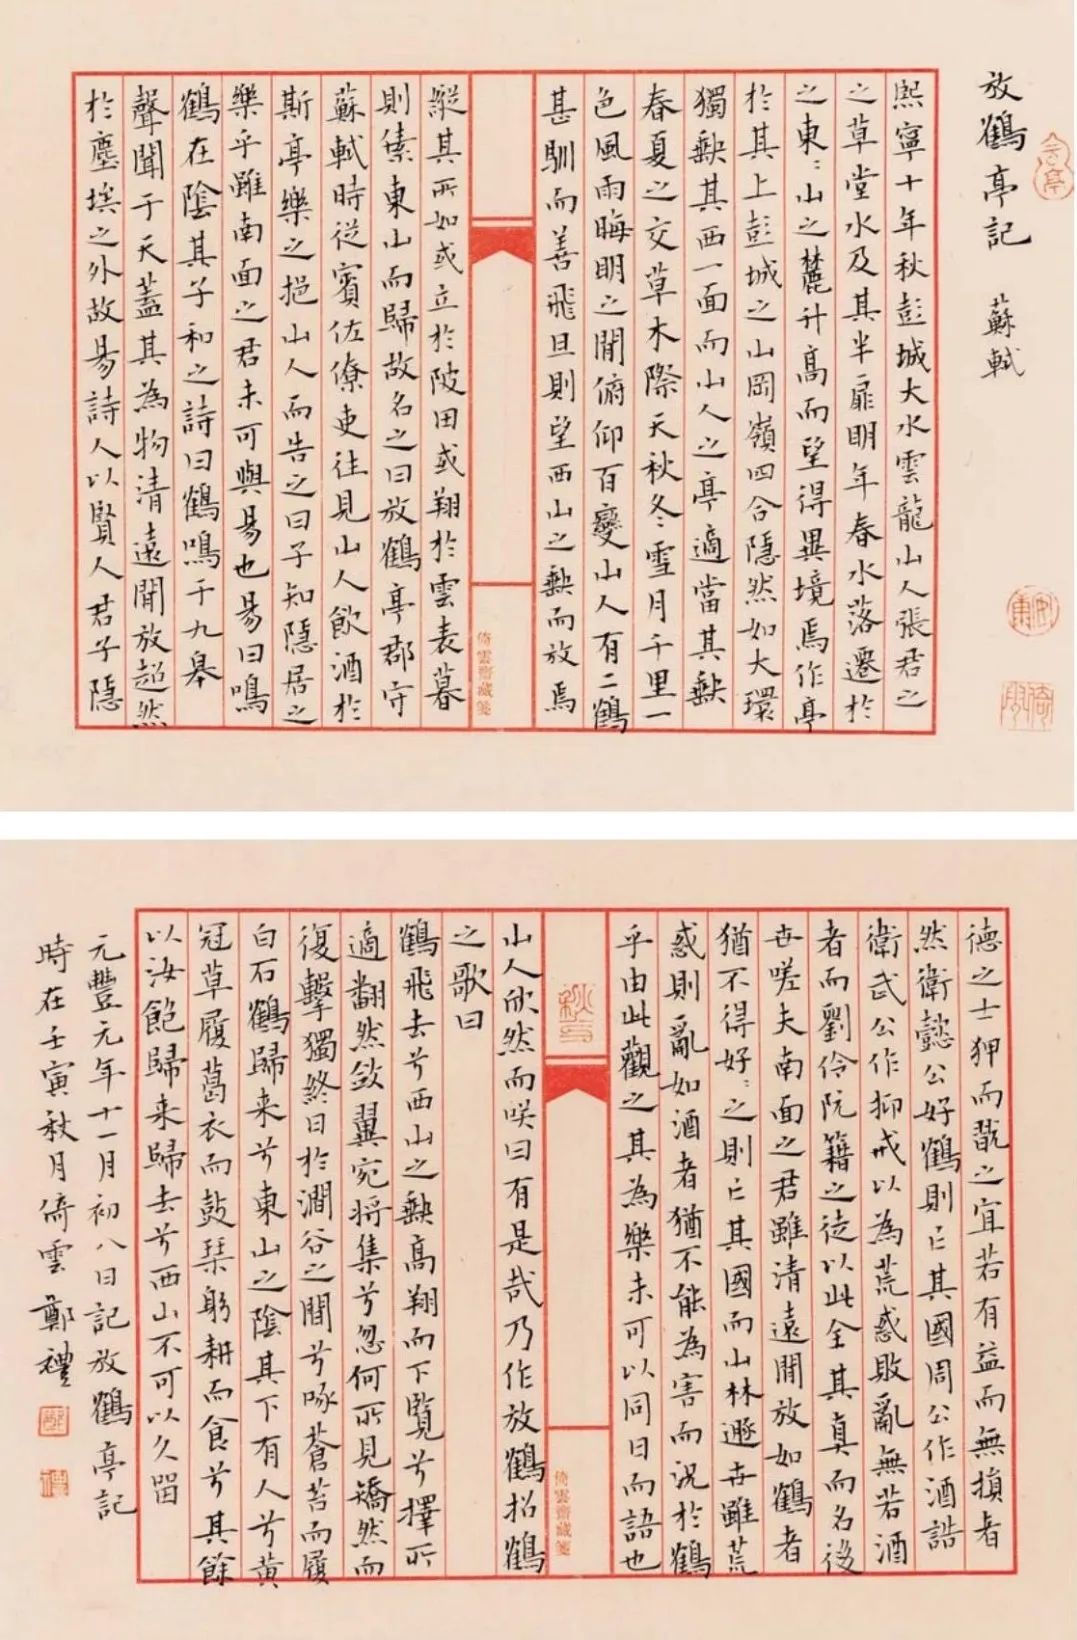 放鶴亭記　蘇軾
熙寧十年秋彭城大水雲龍山人張君之
之草堂水及其半扉明年春水落遷於
之東:山之麓升高而望得異境焉作亭
於其上彭城之山岡嶺四合隱然如大環
獨缺其西一面而山人之亭適當其缺
春夏之交草木際天秋冬雪月千里一
色風雨晦明之間俯仰百變山人有二鶴
甚馴而善飛旦則望西山之缺而放焉
倚雲齋藏箋
縱其所如或立於陂田或翔於雲表暮
則傃東山而歸故名之曰放鶴亭郡守
蘇軾時從賓佐僚吏往見山人飲酒於
斯亭樂之挹山人而告之曰子知隱居之
樂乎雖南面之君未可與易也易曰鳴
鶴在陰其子和之詩曰鶴鳴于九皋
聲聞于天蓋其為物清遠閒放超然
於塵埃之外故易詩人以賢人君子隱
德之士狎而翫之宜若有益而無損者
然衛懿公好鶴則亡其國周公作酒誥
衛武公作抑戒以為荒惑敗亂無若酒
者而劉伶阮籍之徒以此全其真而名後
世嗟夫南面之君雖清遠閒放如鶴者
猶不得好:之則亡其國而山林遯世雖荒
惑則亂如酒者猶不能為害而況於鶴
乎由此觀之其為樂未可以同日而語也
倚雲齋藏箋
山人欣然而咲曰有是哉乃作放鶴招鶴
之歌曰
鶴飛去兮西山之缺高翔而下覽兮擇所
適翻然斂翼宛將集兮忽何所見矯然而
復擊獨終日於澗谷之間兮啄蒼苔而履
白石鶴歸来兮東山之陰其下有人兮黃
冠草履葛衣而鼓琹躬耕而食兮其餘
以汝飽歸来歸去兮西山不可以久留
元豐元年十一月初八日記放鶴亭記
時在壬寅秋月倚雲鄭禮